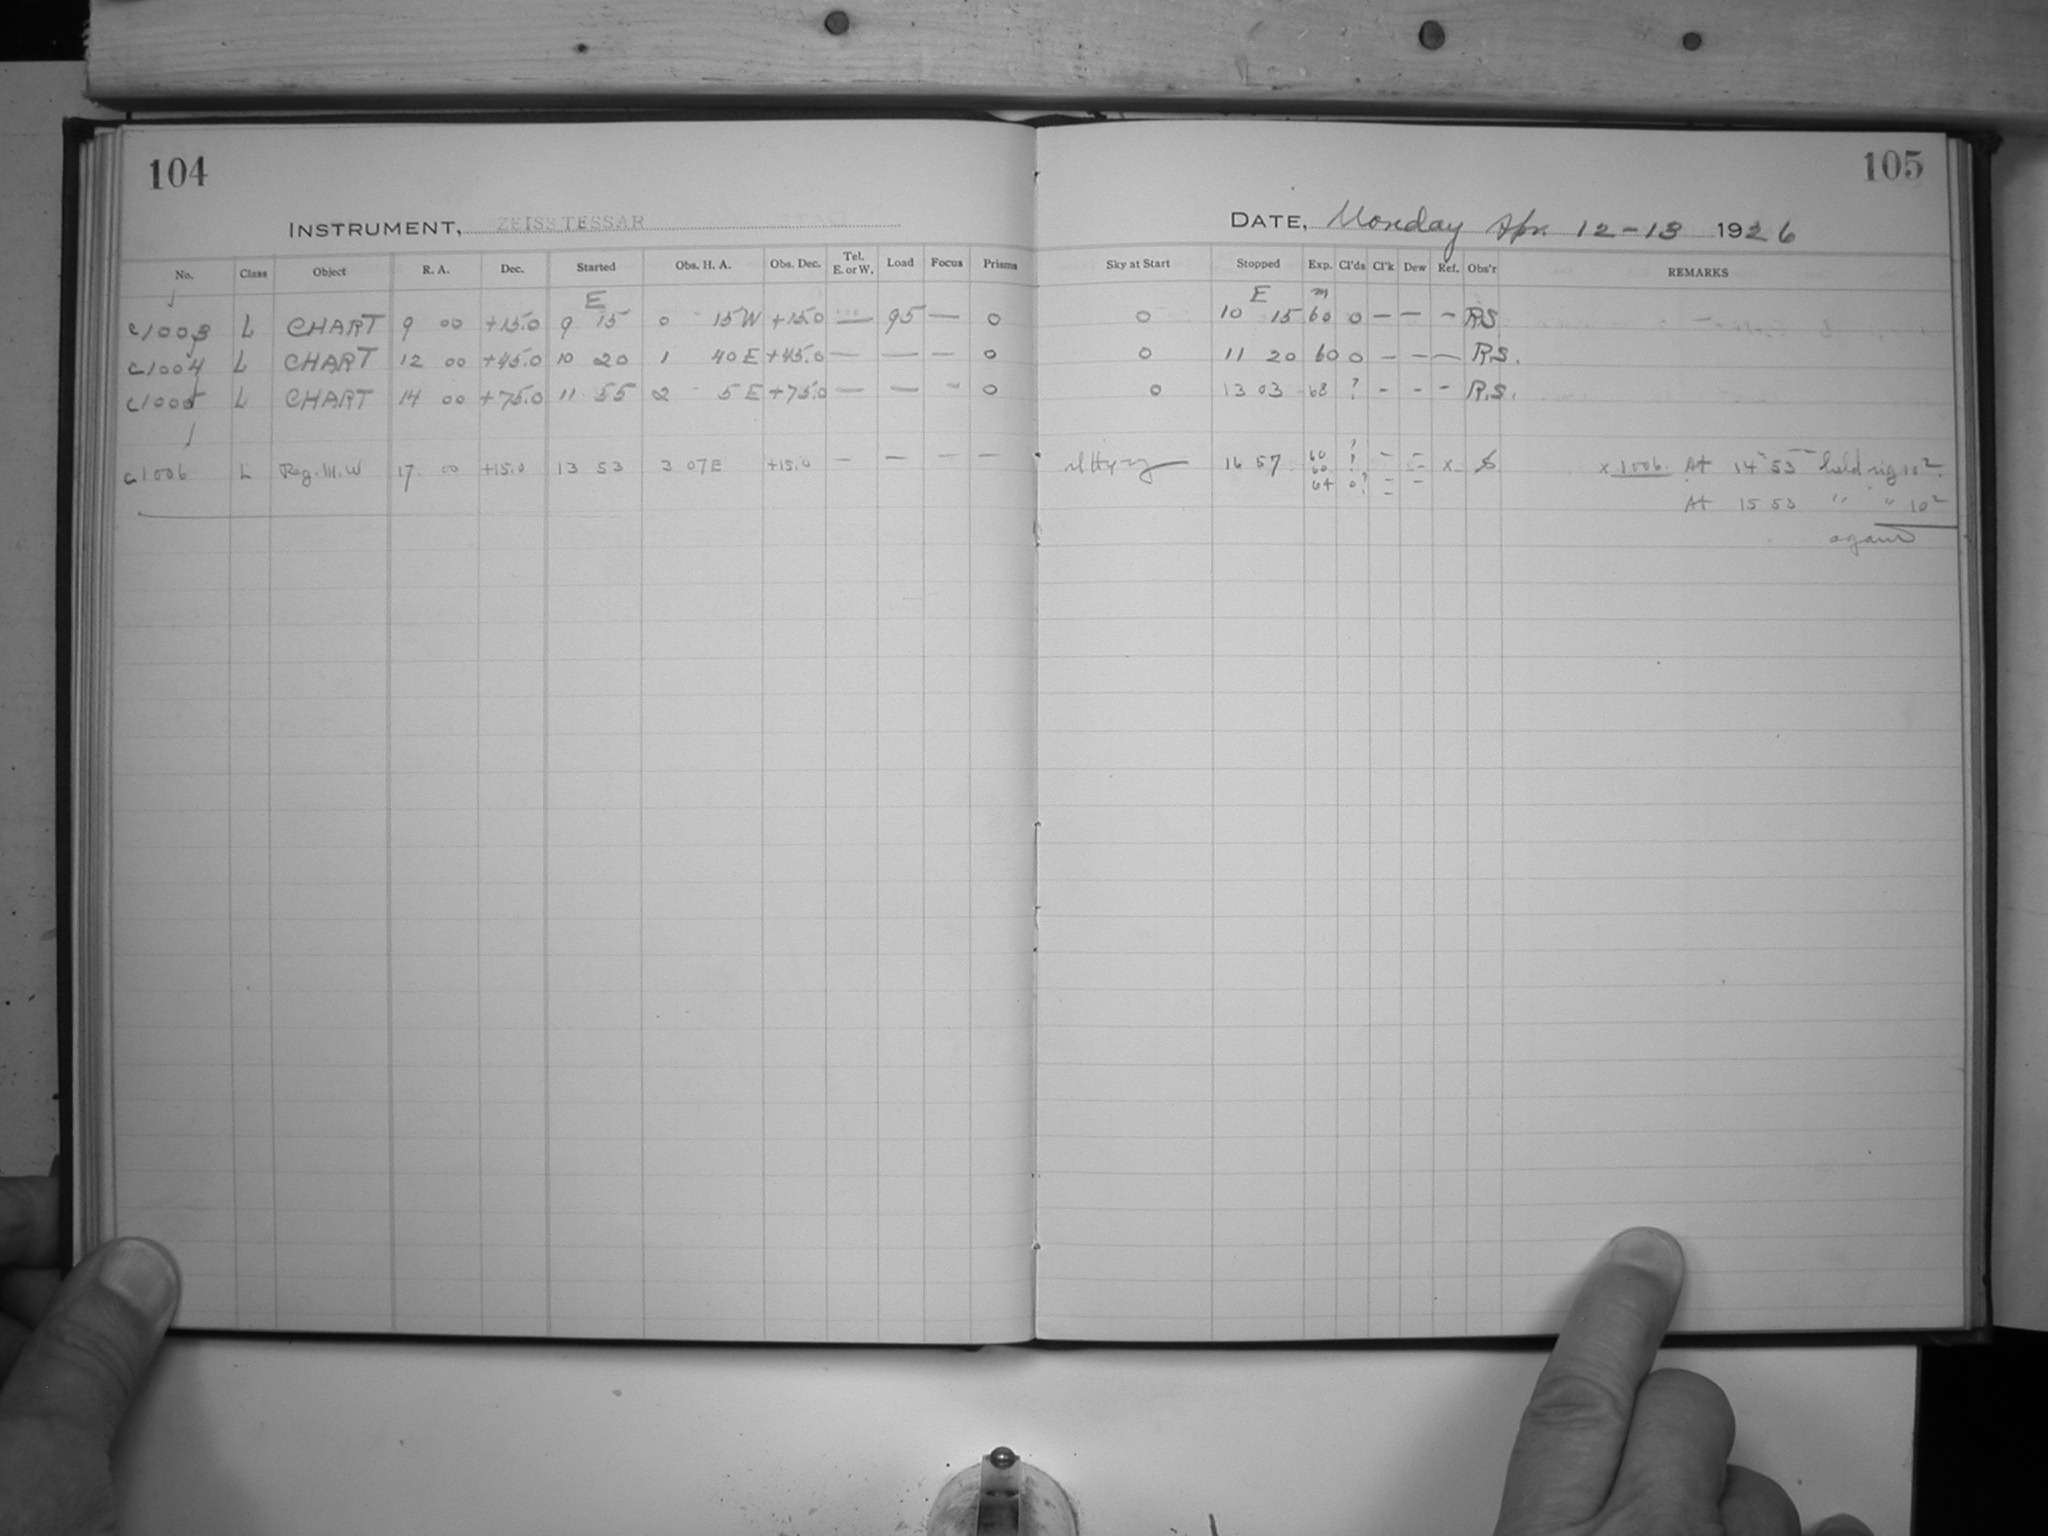 104
INSTRUMENT, ZEISS TESSAR
No. Class Object R. A. Dec. Started Obs. H. A. Obs. Dec. Tel. E. or W. Load Focus Prisms
E
c1003 L CHART 9 00 +15.0 9 15 0 15 W +15.0 — 95 — 0
c1004 L CHART 12 00 +45.0 10 20 1 40 E +45.0 — — — 0
c1005 L CHART 14 00 +75.0 11 55 2 5 E +75.0 — — - 0
c1006 L Reg. M.W 17 00 +15.0 13 53 3 07 E +15.0 — — — —
105
DATE, Monday Apr. 12-13 1926
Sky at Start Stopped Exp. Cl'ds Cl'k Dew Ref. Obs'r REMARKS
E m
0 10 15 60 0 — — - R.S.
0 11 20 60 0 - — — R.S.
0 13 03 68 ? - - - R.S.
16 57 60 ? - - x
60 ? -
64 0? - -
x 1006. At 14 53 held rig 10²
At 15 53 " " 10²
again